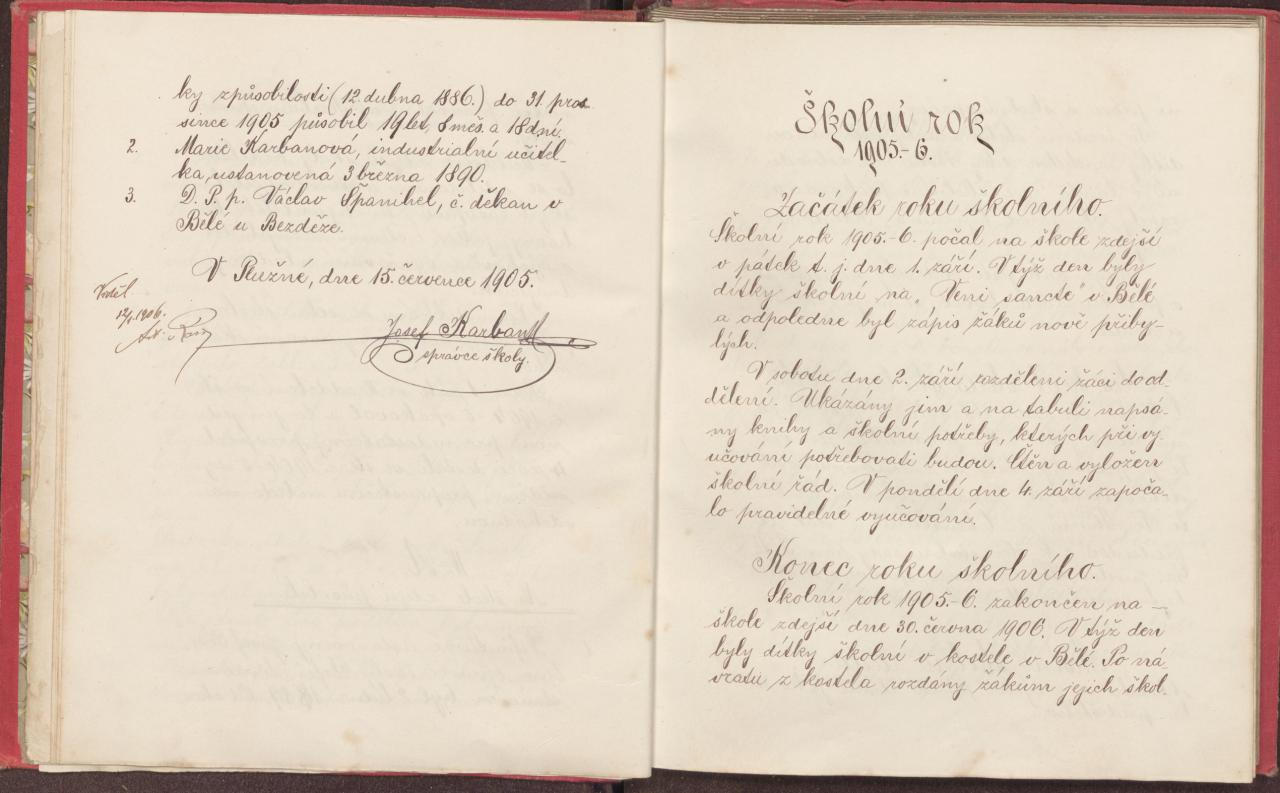 ky způsobilosti (12. dubna 1886.) do 31. pros
since 1905 působil 19 let, 8 měs. a 18 dní.
2. Marie Karbanová, industrialní učitel-
ka, ustanovená 3 března 1890.
3. D. P. p. Václav Španihel, č. děkan v
Bělé u Bezděze.
V Plužné, dne 15. července 1905.
Viděl
1906.
Josef Karban
správce školy.
Školní rok
1905.-6.
Začátek roku školního.
Školní rok 1905.-6. počal na škole zdejší
v pátek t. j. dne 1. září. V týž den byly
dítky školní na „Veni sancte" v Bělé
a odpoledne byl zápis žáků nově přiby-
lých.
V sobotu dne 2. září rozděleni žáci do od-
dělení. Ukázány jim a na tabuli napsá-
ny knihy a školní potřeby, kterých při vy-
učování potřebovati budou. Čtěn a vyložen
školní řád. V pondělí dne 4. září započa-
lo pravidelné vyučování.
Konec roku školního.
Školní rok 1905.-6. zakončen na
škole zdejší dne 30. června 1906. V týž den
byly dítky školní v kostele v Bělé. Po ná-
vratu z kostela rozdány žákům jejich škol-